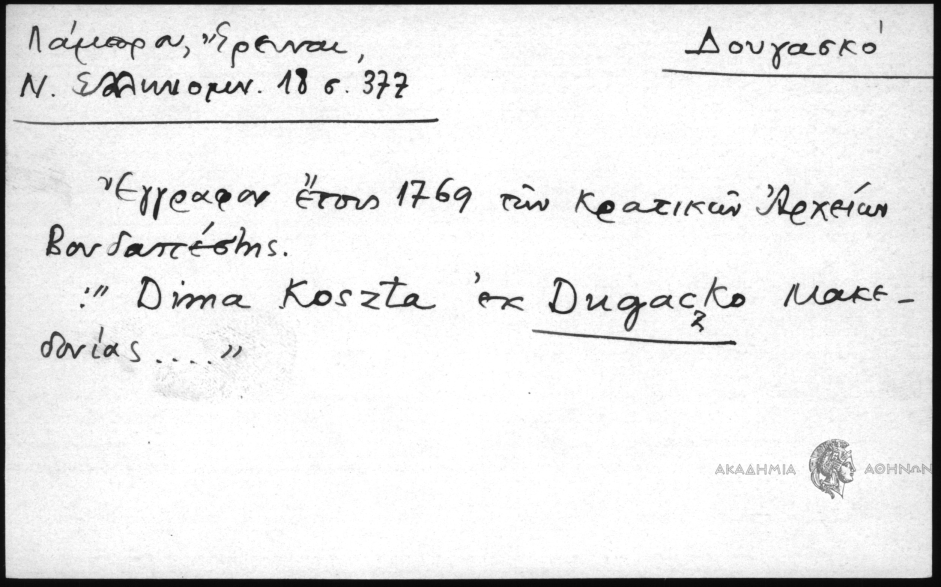 Λάμπρου, Ἔρευναι,
Δουγασκό
Ν. Ἑλληνομν. 18 σ. 377
Ἔγγραφον ἔτους 1769 τῶν Κρατικῶν Ἀρχείων
Βουδαπέστης.
:" Dima Koszta ἐκ Dugaçko Μακε-
δονίας ...."
ΑΚΑΔΗΜΙΑ ΑΘΗΝΩΝ